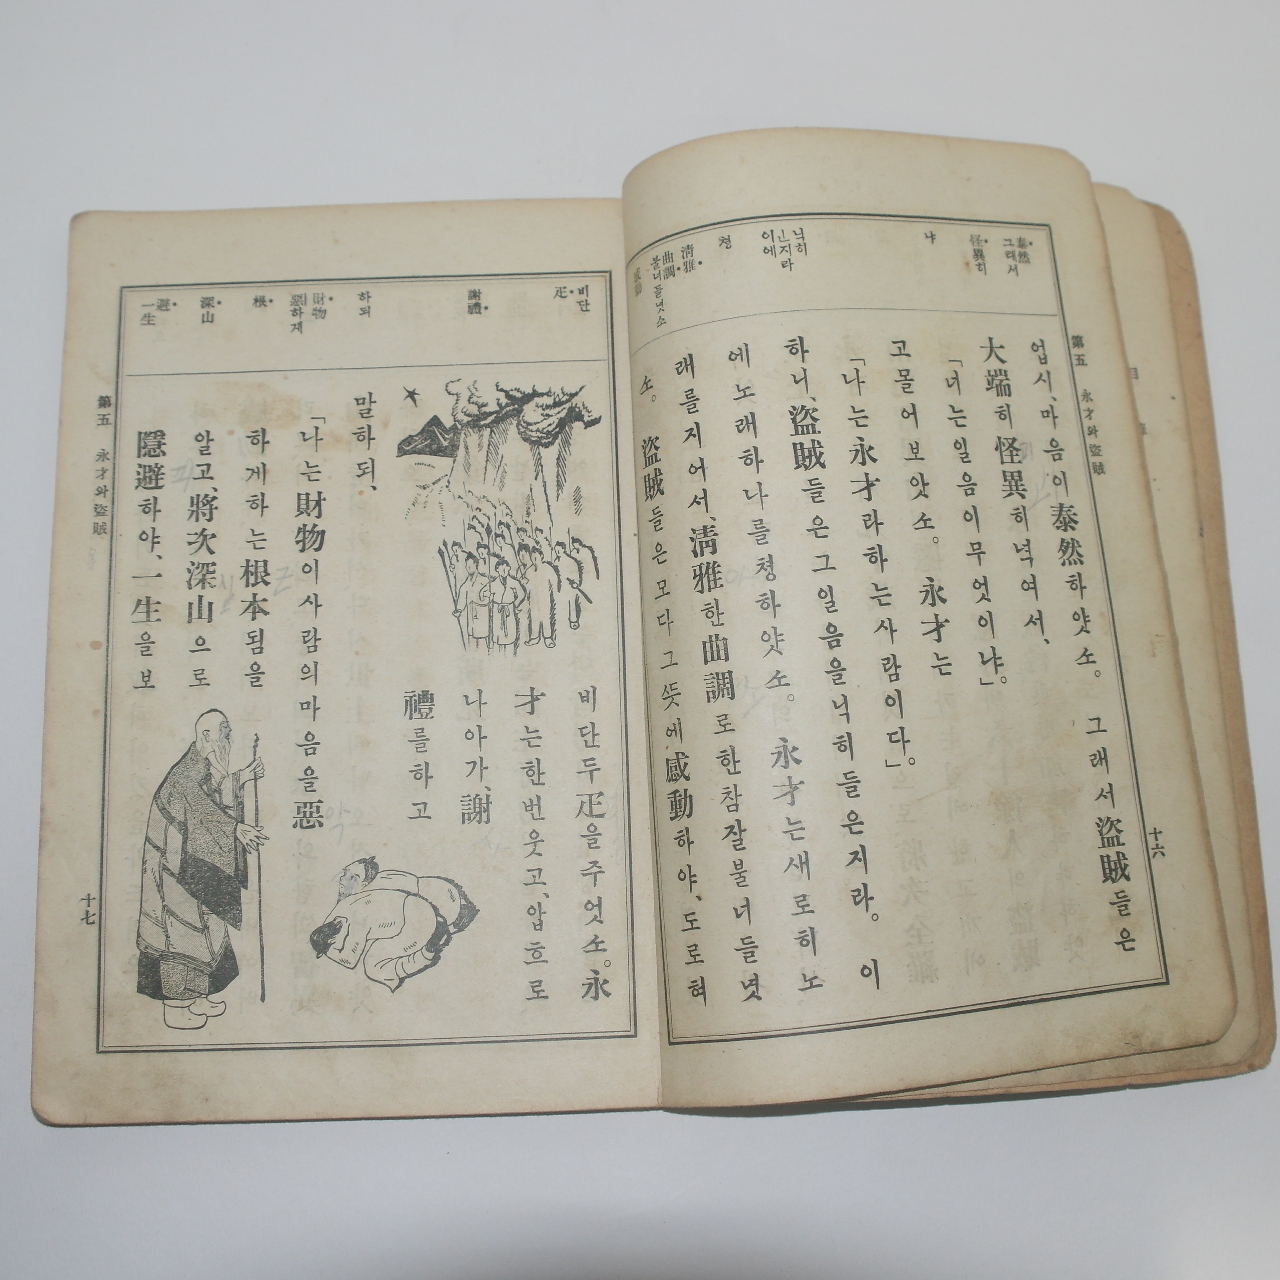 泰然
그래서
怪異히
냐
닉히
는지라
이에
청
淸雅
曲調
불너들넛소
第五 永才와盜賊
十六
업시、마음이 泰然하얏소。 그래서 盜賊들은
大端히 怪異히녁여서、
「너는일음이무엇이냐。」
고물어보앗소。 永才는
「나는永才라하는사람이다。」
하니、盜賊들은그일음을닉히들은지라。 이
에노래하나를청하얏소。 永才는새로히노
래를지어서、淸雅한曲調로한참잘불너들넛
소。 盜賊들은모다그ᄯᅳᆺ에感動하야、도로혀
비단
疋
謝禮
하되
財物
惡하게
根
深山
避
一生
비단두疋을주엇소。永
才는한번웃고、압흐로
나아가、謝
禮를하고
말하되、
「나는財物이사람의마음을惡
하게하는根本됨을
알고、將次深山으로
隱避하야、一生을보
第五 永才와盜賊
十七